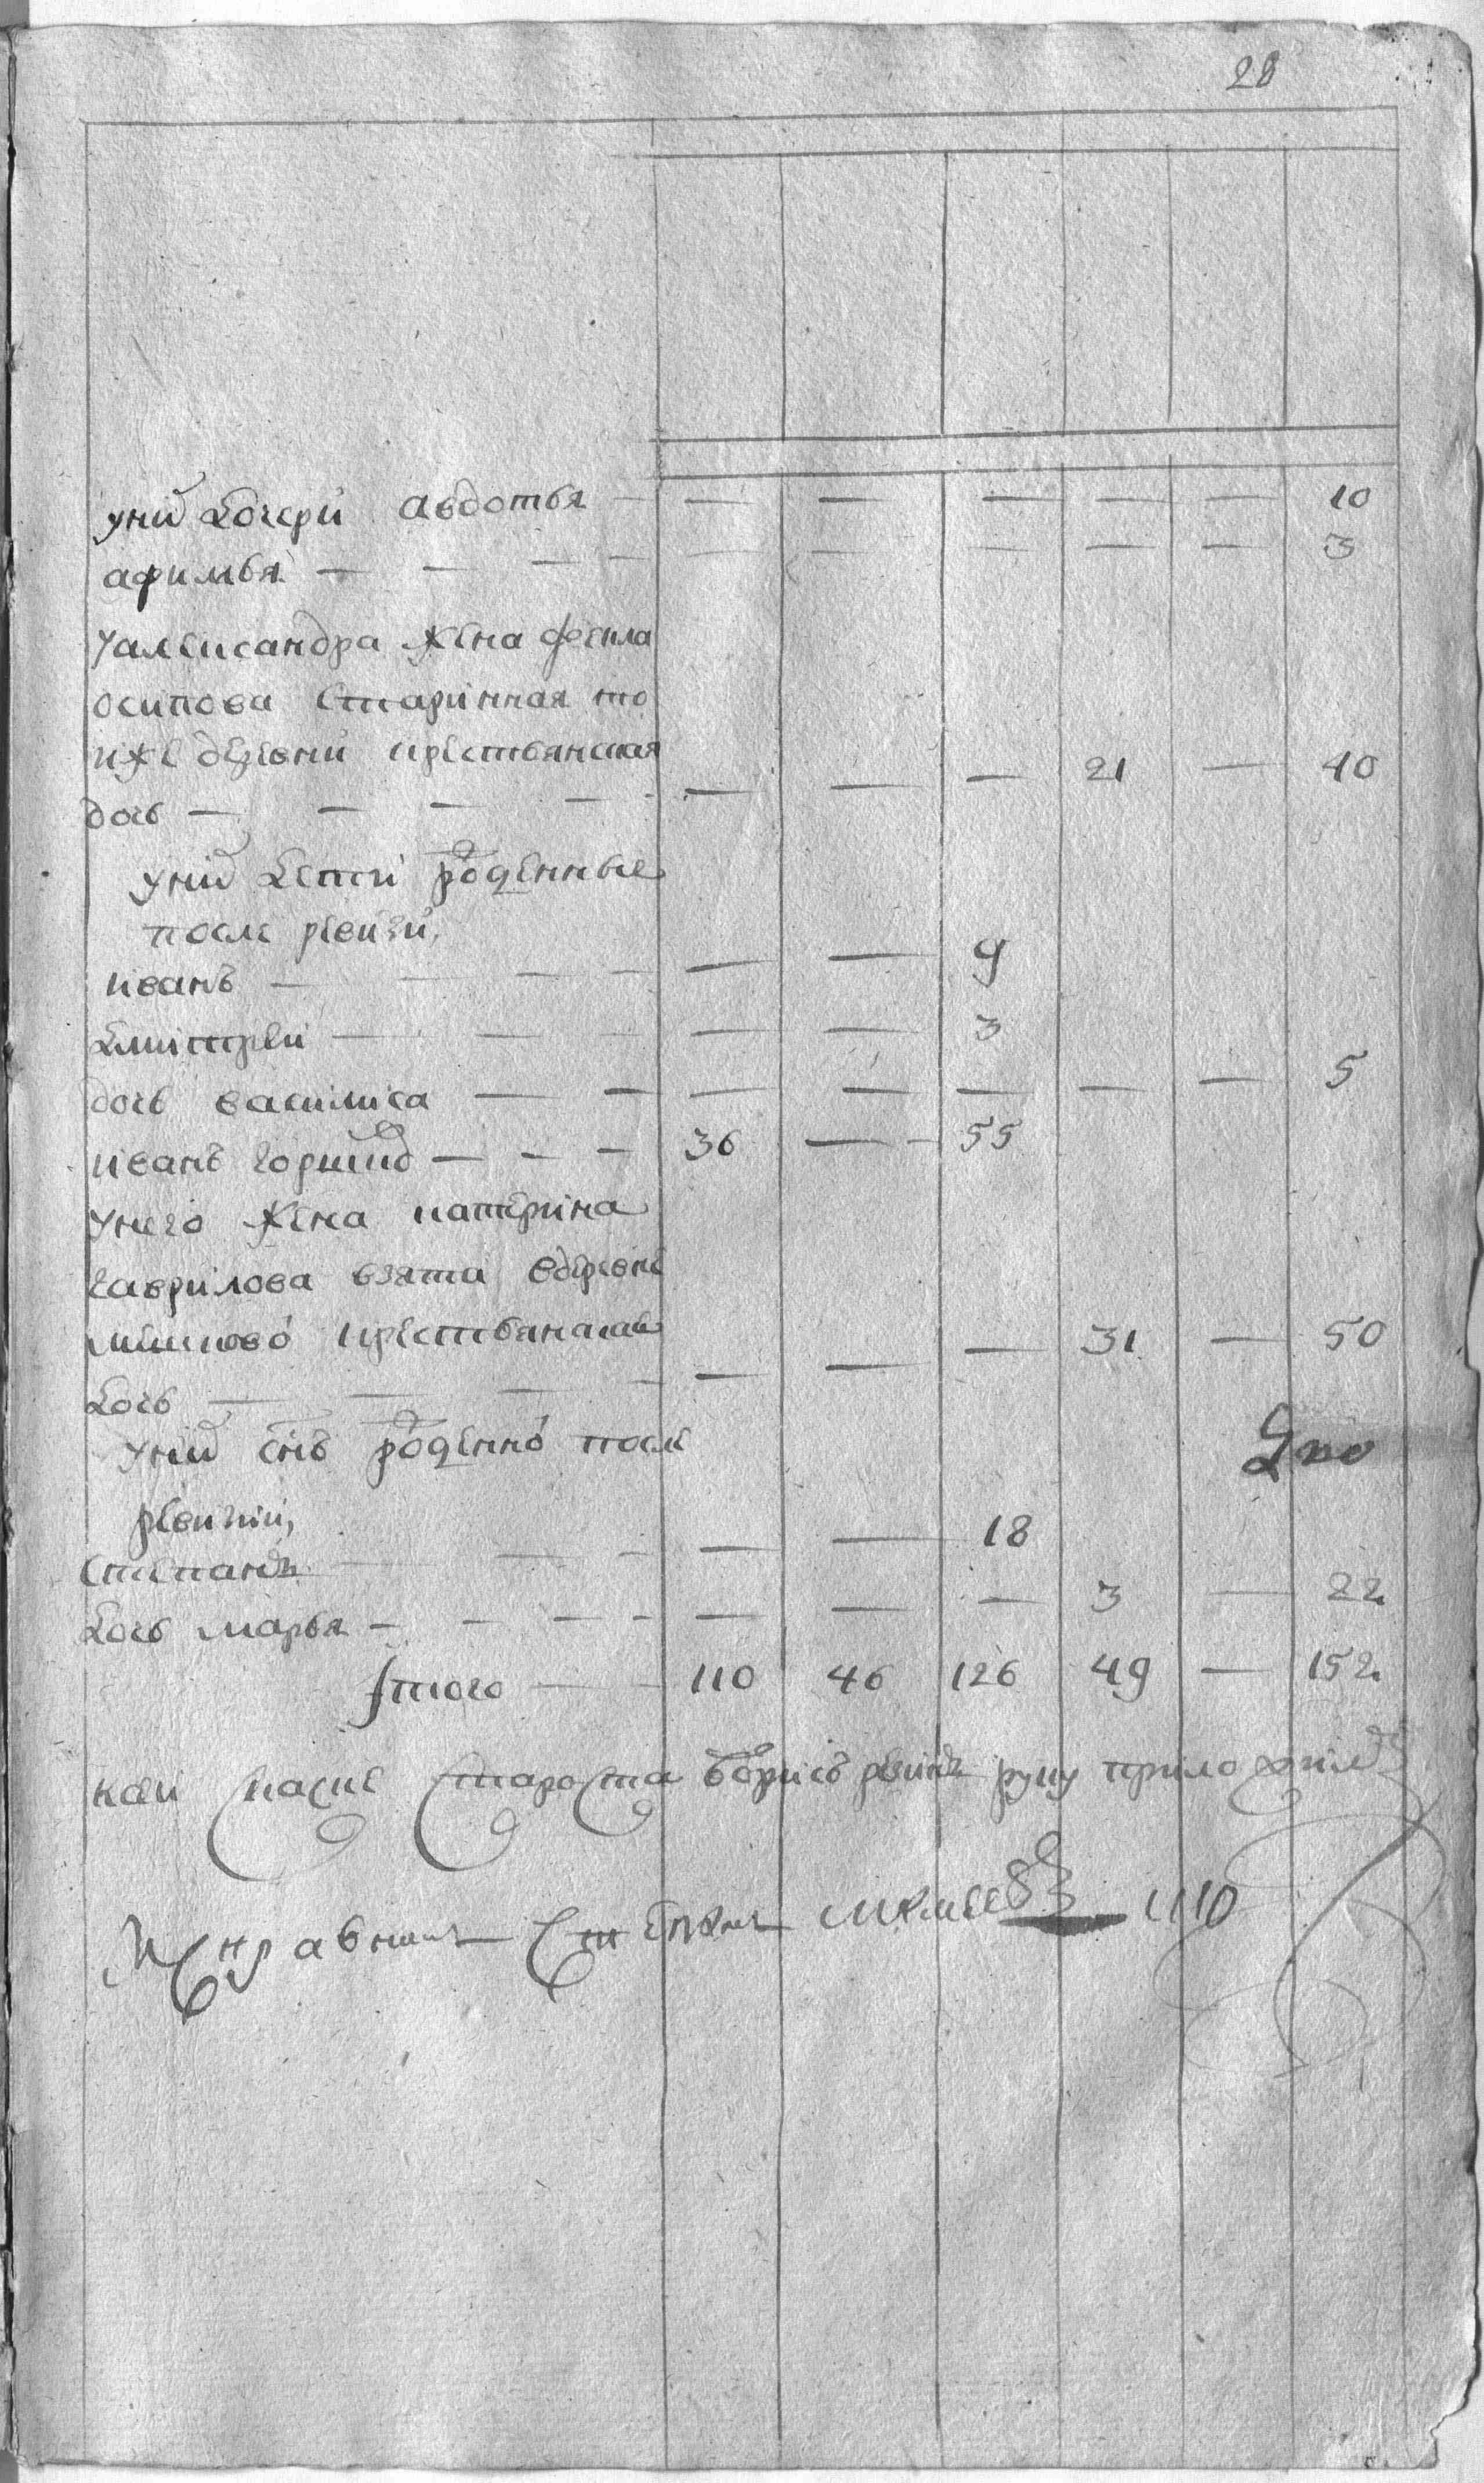 28
у них дочери авдотья — — — — — — 10
афимья — — — — — — — — — 3
у алеисандра жена фекла
осипова старинная то
иже деревни крестьянская
дочь — — — — — — — 21 — 40
у них дети рожденные
после ревизии,
иванъ — — — — — 9
дмитреи — — — — — 3
дочь василиса — — — — — — — 5
иванъ — — — 36 — — 55
у него жена катерина
гаврилова взята в деревне
крестьянская
дочь — — — — — — — 31 — 50
у них снъ рожденно после
ревизии,
степанъ — — — — — 18
дочь марья — — — — — — — 3 — 22
Итого — — 110 46 126 49 — 152
староста борисъ руку приложилъ
110